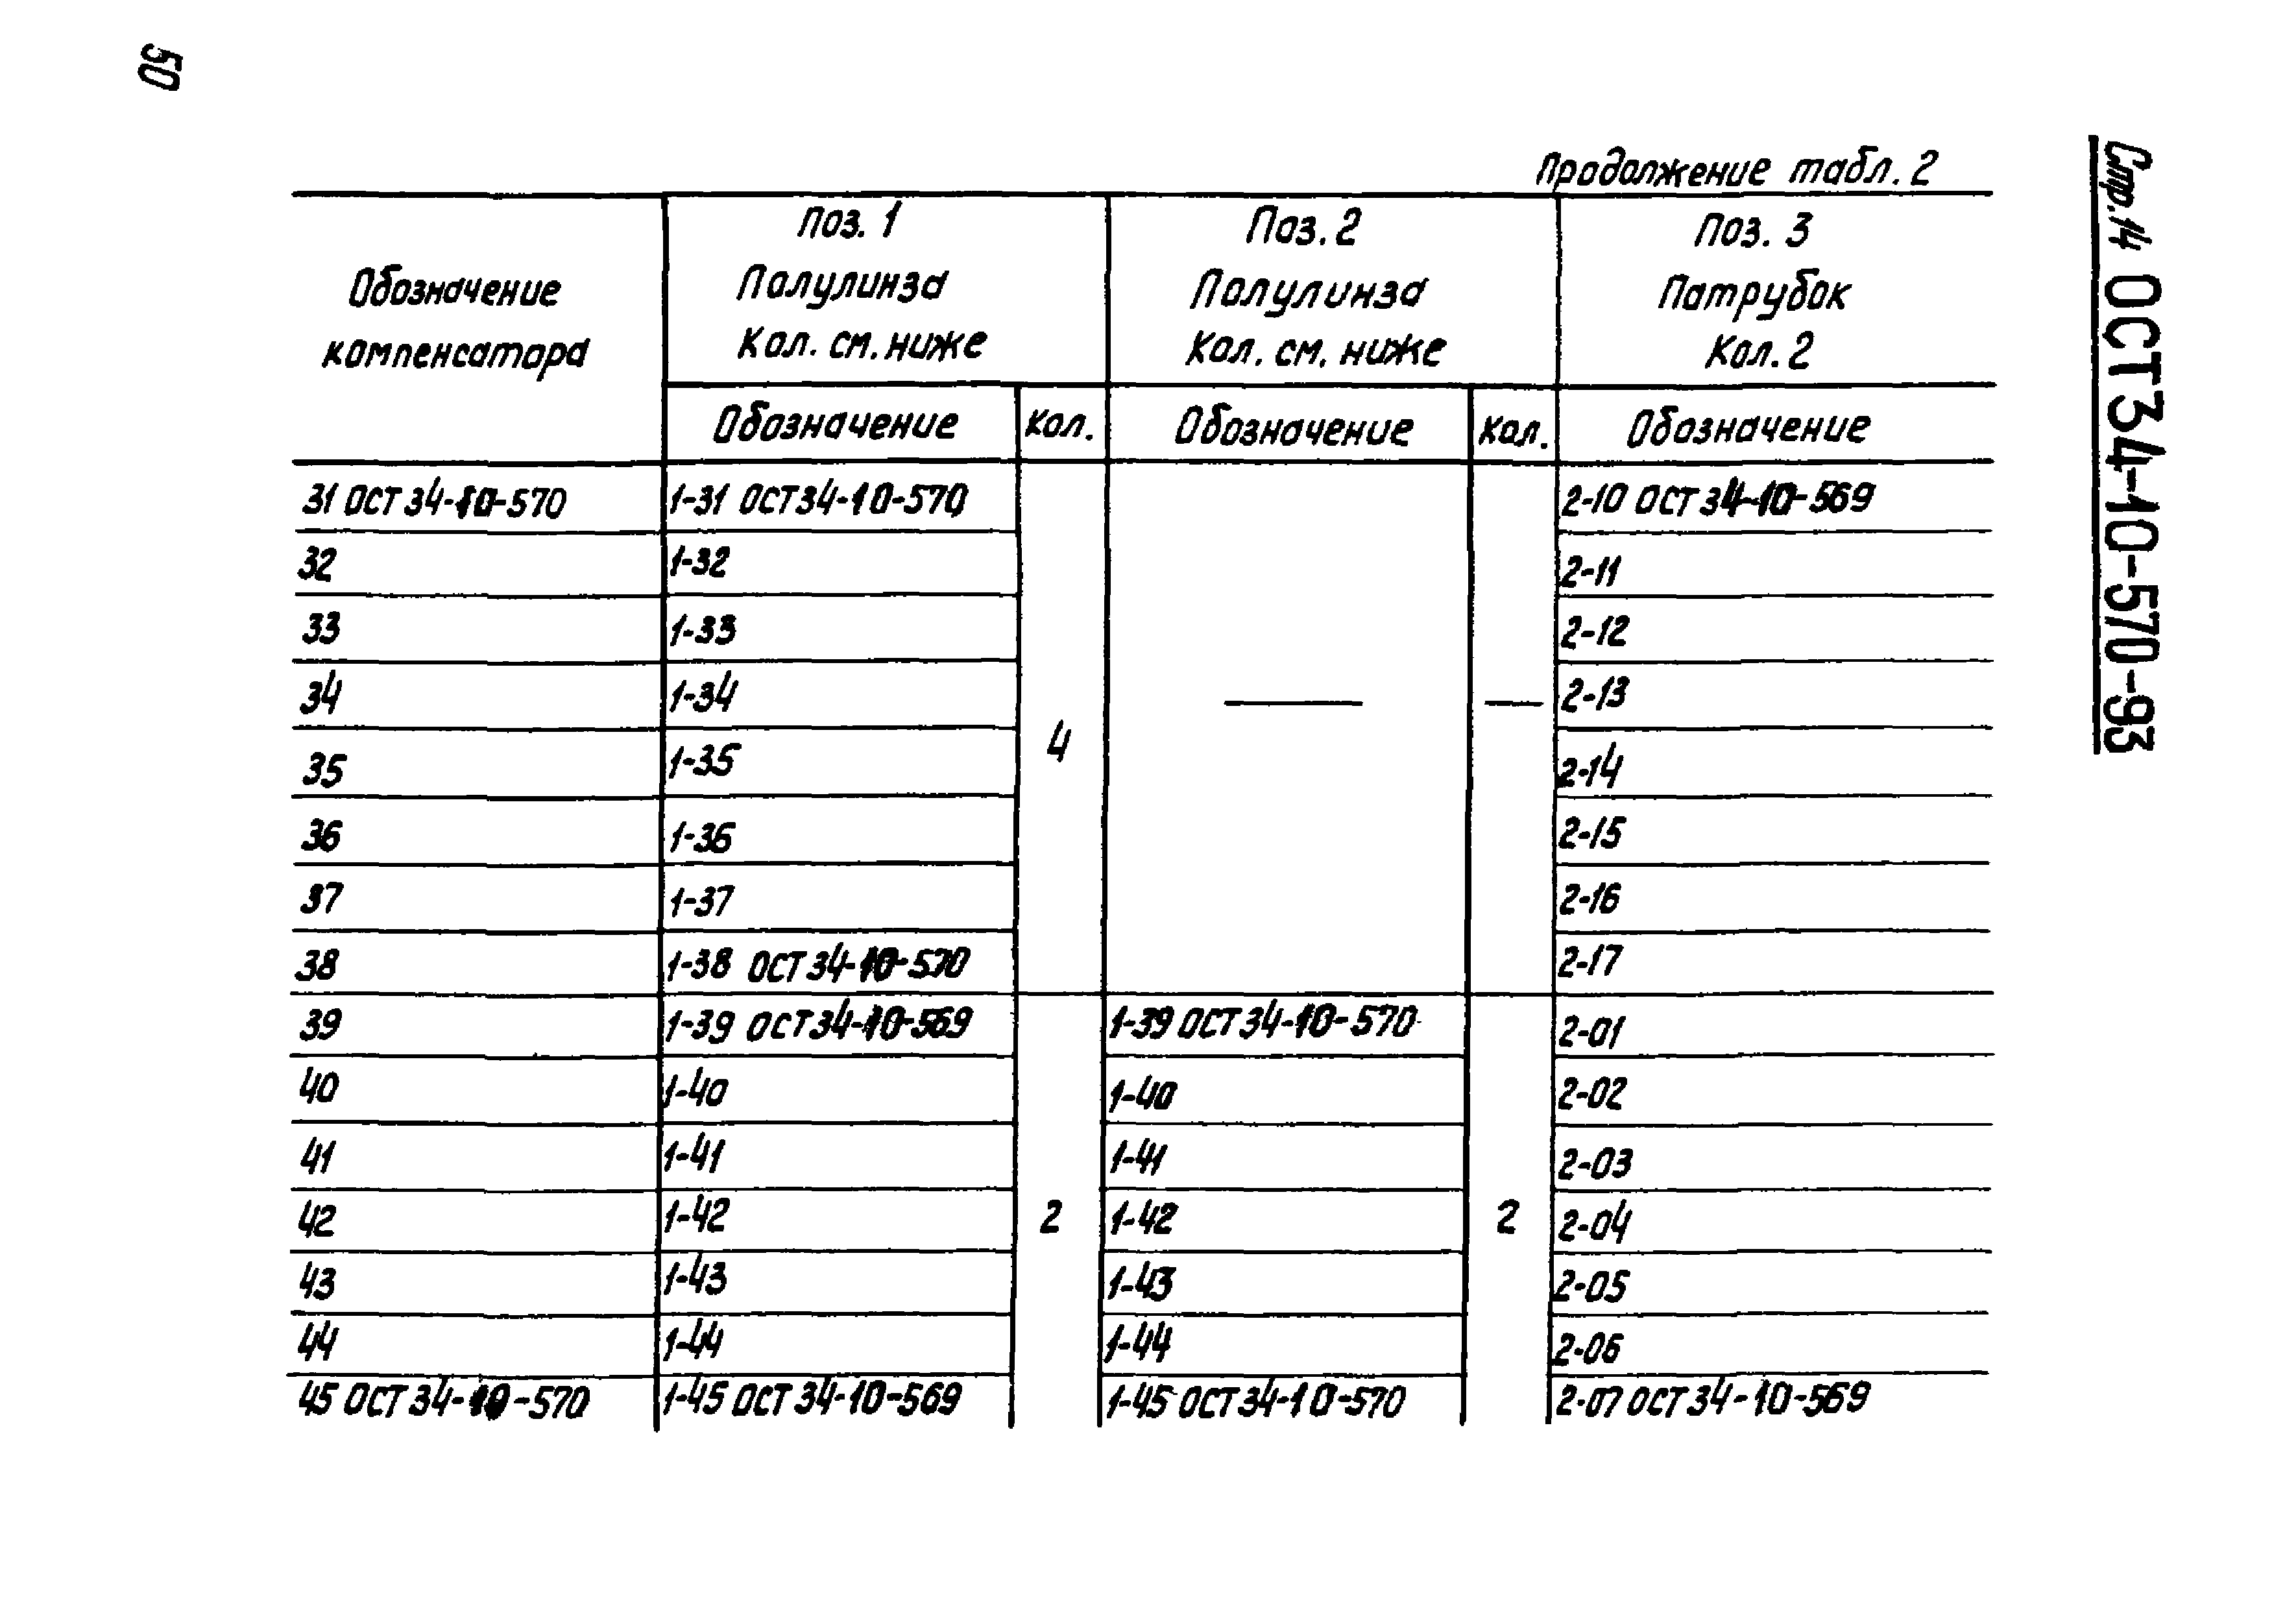 50
Стр.14 ОСТ 34-10-570-93
Продолжение табл. 2
Обозначение
компенсатора
Поз. 1
Полулинза
Кол. см. ниже
Поз. 2
Полулинза
Кол. см. ниже
Поз. 3
Патрубок
Кол. 2
Обозначение Кол. Обозначение Кол. Обозначение
31 ОСТ 34-10-570 1-31 ОСТ 34-10-570 2-10 ОСТ 34-10-569
32 1-32 2-11
33 1-33 2-12
34 1-34 — — 2-13
4
35 1-35 2-14
36 1-36 2-15
37 1-37 2-16
38 1-38 ОСТ 34-10-570 2-17
39 1-39 ОСТ 34-10-569 1-39 ОСТ 34-10-570 2-01
40 1-40 1-40 2-02
41 1-41 1-41 2-03
42 1-42 2 1-42 2 2-04
43 1-43 1-43 2-05
44 1-44 1-44 2-06
45 ОСТ 34-10-570 1-45 ОСТ 34-10-569 1-45 ОСТ 34-10-570 2-07 ОСТ 34-10-569